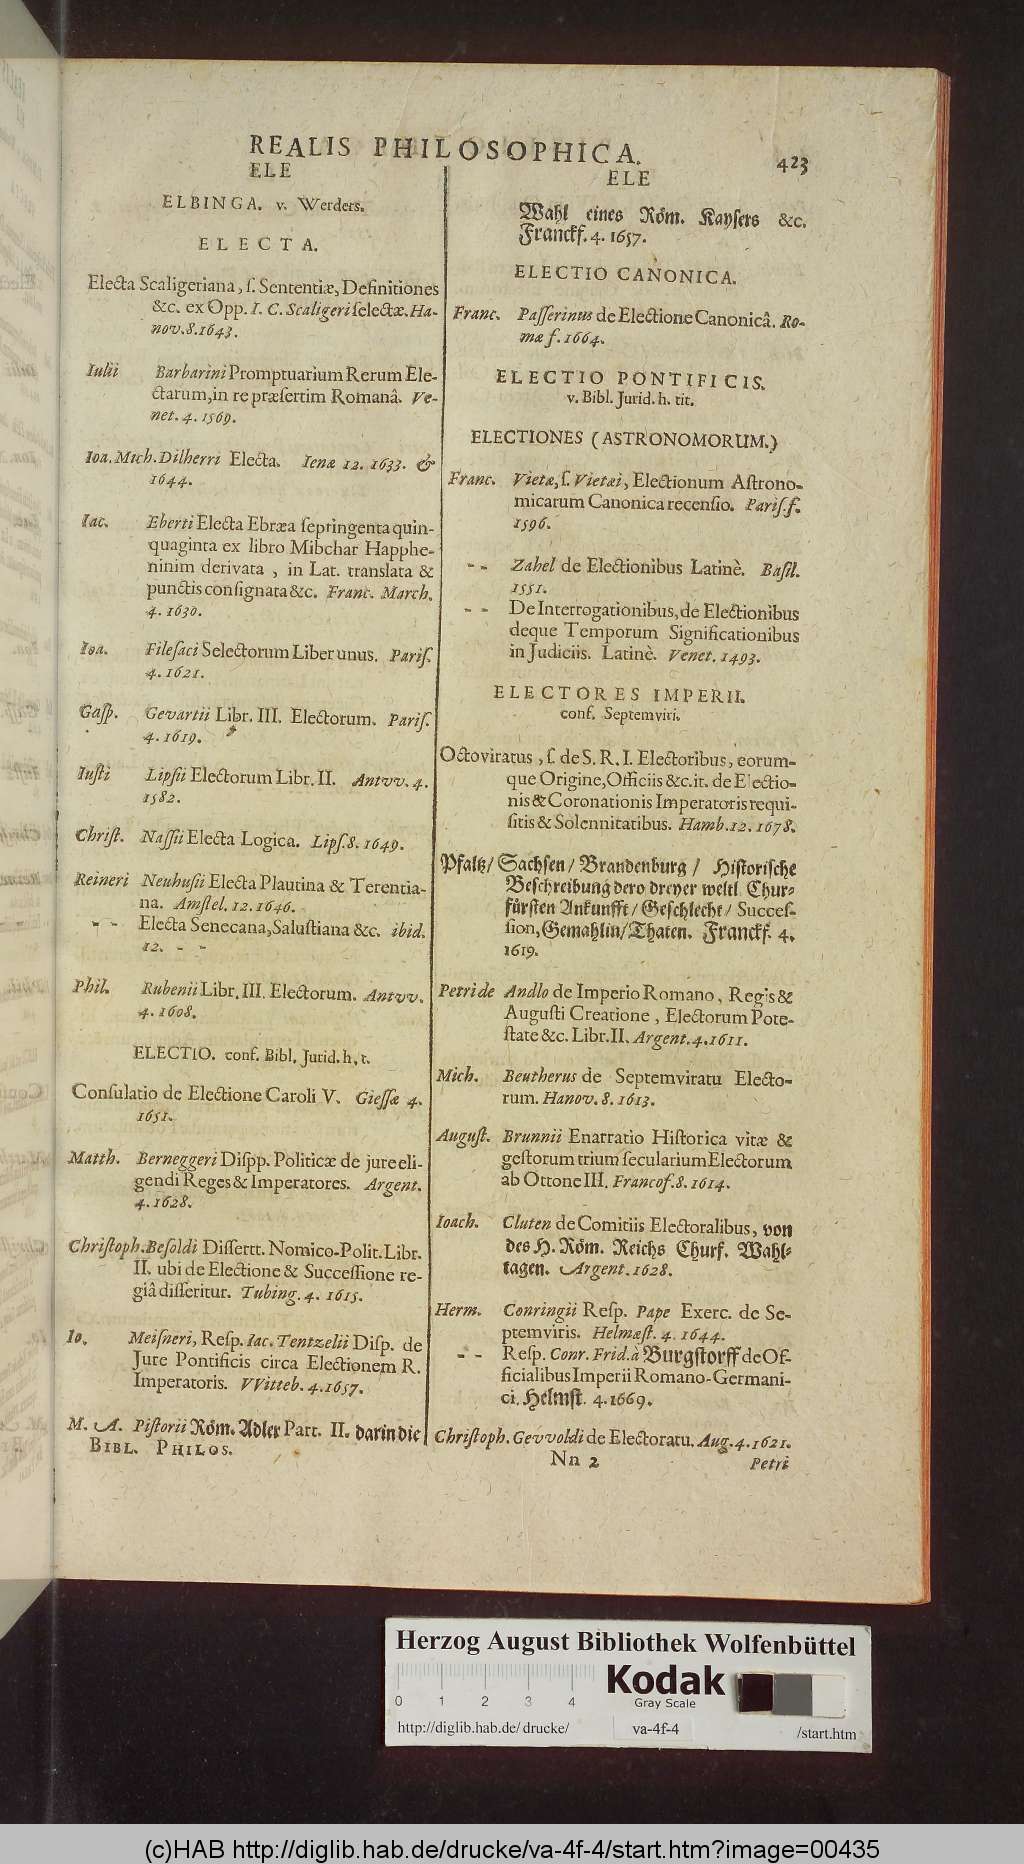 REALIS PHILOSOPHICA.
423
ELE
ELBINGA. v. Werders.
ELECTA.
Electa Scaligeriana, ſ. Sententiæ, Definitiones
&c. ex Opp. I. C. Scaligeri ſelectæ. Ha-
nov. 8. 1643.
Iulii Barbarini Promptuarium Rerum Ele-
ctarum, in re præſertim Romanâ. Ve-
net. 4. 1569.
Ioa. Mich. Dilherri Electa. Ienæ 12. 1633. &
1644.
Iac. Eberti Electa Ebræa ſepringenta quin-
quaginta ex libro Mibchar Happhe-
ninim derivata, in Lat. translata &
punctis conſignata &c. Franc. March.
4. 1630.
Ioa. Fileſaci Selectorum Liber unus. Pariſ.
4. 1621.
Gaſp. Gevartii Libr. III. Electorum. Pariſ.
4. 1619.
Iuſti Lipſii Electorum Libr. II. Antvv. 4.
1582.
Chriſt. Naſſii Electa Logica. Lipſ. 8. 1649.
Reineri Neuhuſii Electa Plautina & Terentia-
na. Amſtel. 12. 1646.
- - Electa Senecana, Saluſtiana &c. ibid.
12. - -
Phil. Rubenii Libr. III. Electorum. Antvv.
4. 1608.
ELECTIO. conf. Bibl. Jurid. h. t.
Conſulatio de Electione Caroli V. Gieſſæ 4.
1651.
Matth. Berneggeri Diſpp. Politicæ de jure eli-
gendi Reges & Imperatores. Argent.
4. 1628.
Chriſtoph. Beſoldi Diſſertt. Nomico-Polit. Libr.
II. ubi de Electione & Succeſſione re-
giâ diſſeritur. Tubing. 4. 1615.
Io. Meiſneri, Reſp. Iac. Tentzelii Diſp. de
Jure Pontificis circa Electionem R.
Imperatoris. VVitteb. 4. 1657.
M. A. Piſtorii Röm. Adler Part. II. darin die
BIBL. PHILOS.
ELE
Wahl eines Röm. Kayſers &c.
Franckf. 4. 1657.
ELECTIO CANONICA.
Franc. Paſſerinus de Electione Canonicâ. Ro-
mæ f. 1664.
ELECTIO PONTIFICIS.
v. Bibl. Jurid. h. tit.
ELECTIONES (ASTRONOMORUM.)
Franc. Vietæ, ſ. Vietæi, Electionum Aſtrono-
micarum Canonica recenſio. Pariſ. f.
1596.
- - Zahel de Electionibus Latinè. Baſil.
1551.
- - De Interrogationibus, de Electionibus
deque Temporum Significationibus
in Judiciis. Latinè. Venet. 1493.
ELECTORES IMPERII.
conf. Septemviri.
Octoviratus, ſ. de S. R. I. Electoribus, eorum-
que Origine, Officiis &c. it. de Electio-
nis & Coronationis Imperatoris requi-
ſitis & Solennitatibus. Hamb. 12. 1678.
Pfaltz/ Sachſen/ Brandenburg/ Hiſtoriſche
Beſchreibung dero dreyer weltl. Chur-
fürſten Ankunfft/ Geſchlecht/ Succeſ-
ſion, Gemahlin/ Thaten. Franckf. 4.
1619.
Petri de Andlo de Imperio Romano, Regis &
Auguſti Creatione, Electorum Pote-
ſtate &c. Libr. II. Argent. 4. 1611.
Mich. Beutherus de Septemviratu Electo-
rum. Hanov. 8. 1613.
Auguſt. Brunnii Enarratio Hiſtorica vitæ &
geſtorum trium ſecularium Electorum
ab Ottone III. Francof. 8. 1614.
Ioach. Cluten de Comitiis Electoralibus, von
des H. Röm. Reichs Churf. Wahl-
tagen. Argent. 1628.
Herm. Conringii Reſp. Pape Exerc. de Se-
ptemviris. Helmæſt. 4. 1644.
- - Reſp. Conr. Frid. à Burgſtorff de Of-
ficialibus Imperii Romano-Germani-
ci. Helmſt. 4. 1669.
Chriſtoph. Gevvoldi de Electoratu. Aug. 4. 1621.
Nn 2
Petri
Herzog August Bibliothek Wolfenbüttel
Kodak
Gray Scale
0 1 2 3 4
http://diglib.hab.de/ drucke/ va-4f-4 /start.htm
(c)HAB http://diglib.hab.de/drucke/va-4f-4/start.htm?image=00435